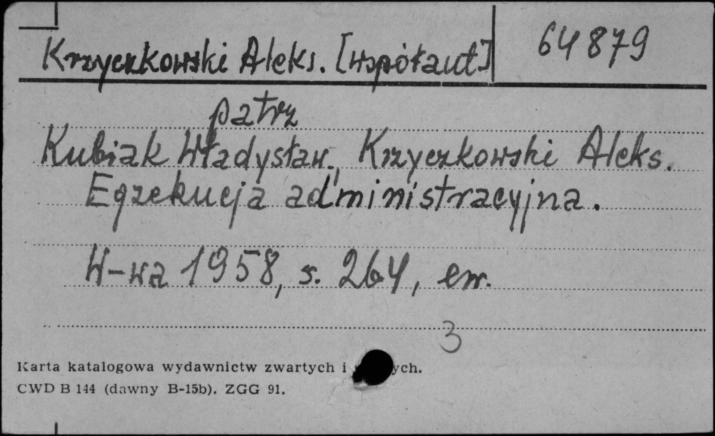 Krzyczkowski Aleks. [współaut] 64879
patrz
Kubiak Władysław, Krzyczkowski Aleks.
Egzekucja administracyjna.
W-wa 1958, s. 264, err.
3
Karta katalogowa wydawnictw zwartych i ych.
CWD B 144 (dawny B-15b). ZGG 91.